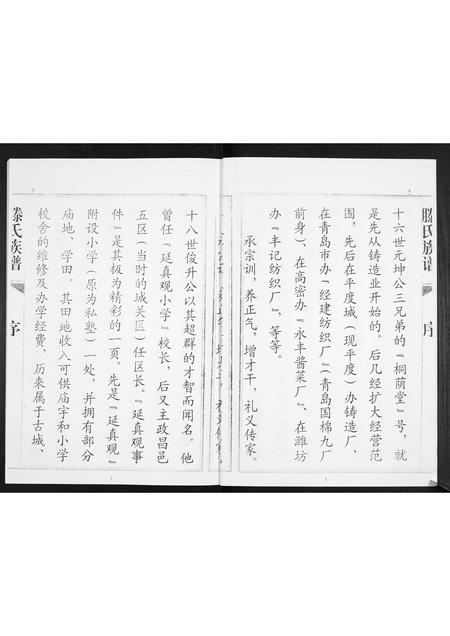 滕氏族谱
序
十六世元坤公三兄弟的『桐荫堂』号，就
是先从铸造业开始的。后几经扩大经营范
围，先后在平度城（现平度）办铸造厂、
在青岛市办『经建纺织厂』（青岛国棉九厂
前身）、在高密办『永丰酱菜厂』、在潍坊
办『丰记纺织厂』，等等。
承宗训，养正气，增才干，礼义传家。
十八世俊升公以其超群的才智而闻名。他
曾任『延真观小学』校长，后又主政昌邑
五区（当时的城关区）任区长。『延真观事
件』是其极为精彩的一页。先是『延真观』
附设小学（原为私塾）一处，并拥有部分
庙地、学田。其田地收入可供庙宇和小学
校舍的维修及办学经费，历来属于古城、
滕氏族谱
序